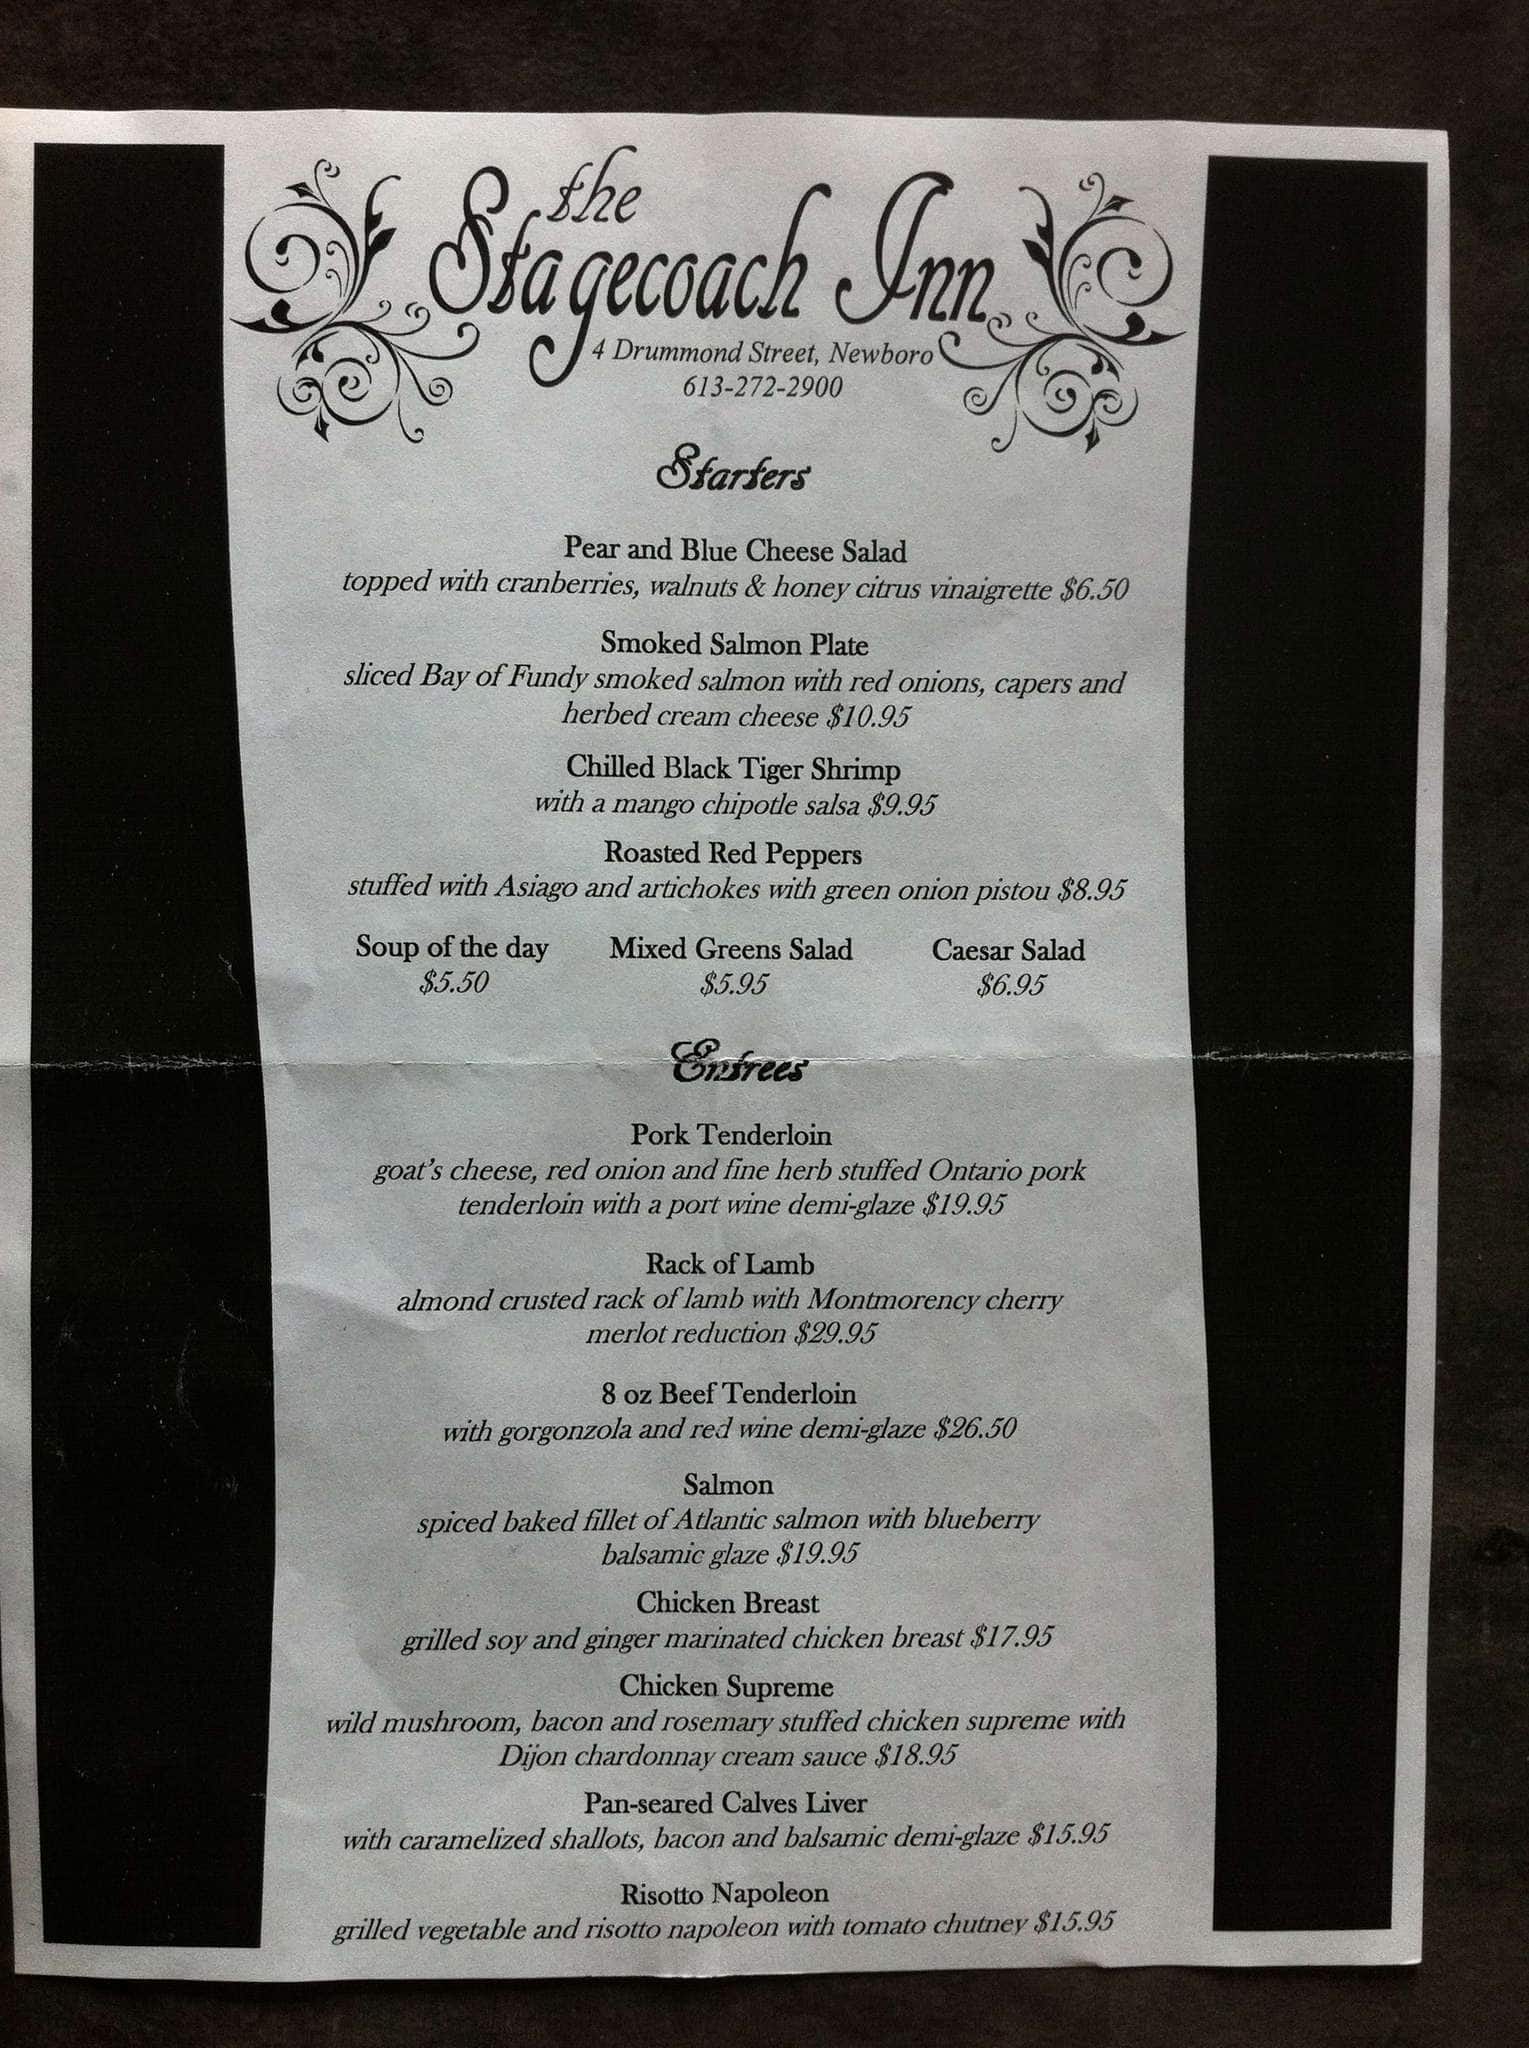 the
Stagecoach Inn
4 Drummond Street, Newboro
613-272-2900
Starters
Pear and Blue Cheese Salad
topped with cranberries, walnuts & honey citrus vinaigrette $6.50
Smoked Salmon Plate
sliced Bay of Fundy smoked salmon with red onions, capers and
herbed cream cheese $10.95
Chilled Black Tiger Shrimp
with a mango chipotle salsa $9.95
Roasted Red Peppers
stuffed with Asiago and artichokes with green onion pistou $8.95
Soup of the day Mixed Greens Salad Caesar Salad
$5.50 $5.95 $6.95
Entrees
Pork Tenderloin
goat's cheese, red onion and fine herb stuffed Ontario pork
tenderloin with a port wine demi-glaze $19.95
Rack of Lamb
almond crusted rack of lamb with Montmorency cherry
merlot reduction $29.95
8 oz Beef Tenderloin
with gorgonzola and red wine demi-glaze $26.50
Salmon
spiced baked fillet of Atlantic salmon with blueberry
balsamic glaze $19.95
Chicken Breast
grilled soy and ginger marinated chicken breast $17.95
Chicken Supreme
wild mushroom, bacon and rosemary stuffed chicken supreme with
Dijon chardonnay cream sauce $18.95
Pan-seared Calves Liver
with caramelized shallots, bacon and balsamic demi-glaze $15.95
Risotto Napoleon
grilled vegetable and risotto napoleon with tomato chutney $15.95